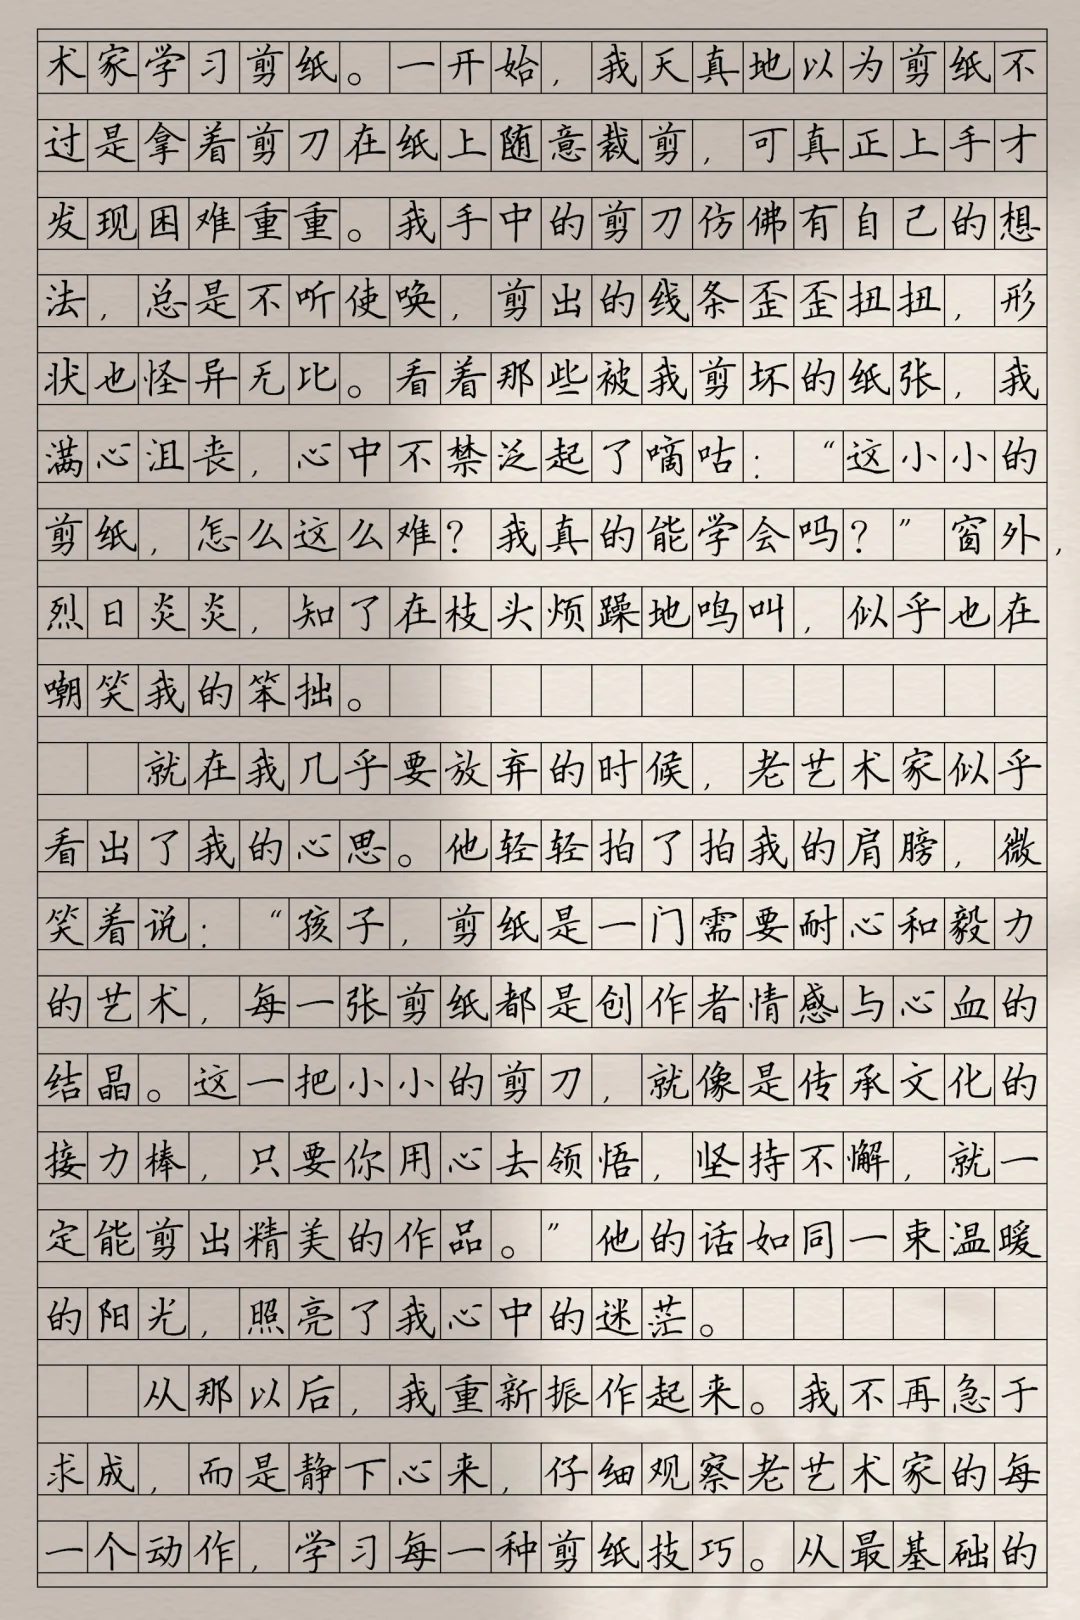 术家学习剪纸。一开始，我天真地以为剪纸不
过是拿着剪刀在纸上随意裁剪，可真正上手才
发现困难重重。我手中的剪刀仿佛有自己的想
法，总是不听使唤，剪出的线条歪歪扭扭，形
状也怪异无比。看着那些被我剪坏的纸张，我
满心沮丧，心中不禁泛起了嘀咕：“这小小的
剪纸，怎么这么难？我真的能学会吗？”窗外，
烈日炎炎，知了在枝头烦躁地鸣叫，似乎也在
嘲笑我的笨拙。
就在我几乎要放弃的时候，老艺术家似乎
看出了我的心思。他轻轻拍了拍我的肩膀，微
笑着说：“孩子，剪纸是一门需要耐心和毅力
的艺术，每一张剪纸都是创作者情感与心血的
结晶。这一把小小的剪刀，就像是传承文化的
接力棒，只要你用心去领悟，坚持不懈，就一
定能剪出精美的作品。”他的话如同一束温暖
的阳光，照亮了我心中的迷茫。
从那以后，我重新振作起来。我不再急于
求成，而是静下心来，仔细观察老艺术家的每
一个动作，学习每一种剪纸技巧。从最基础的